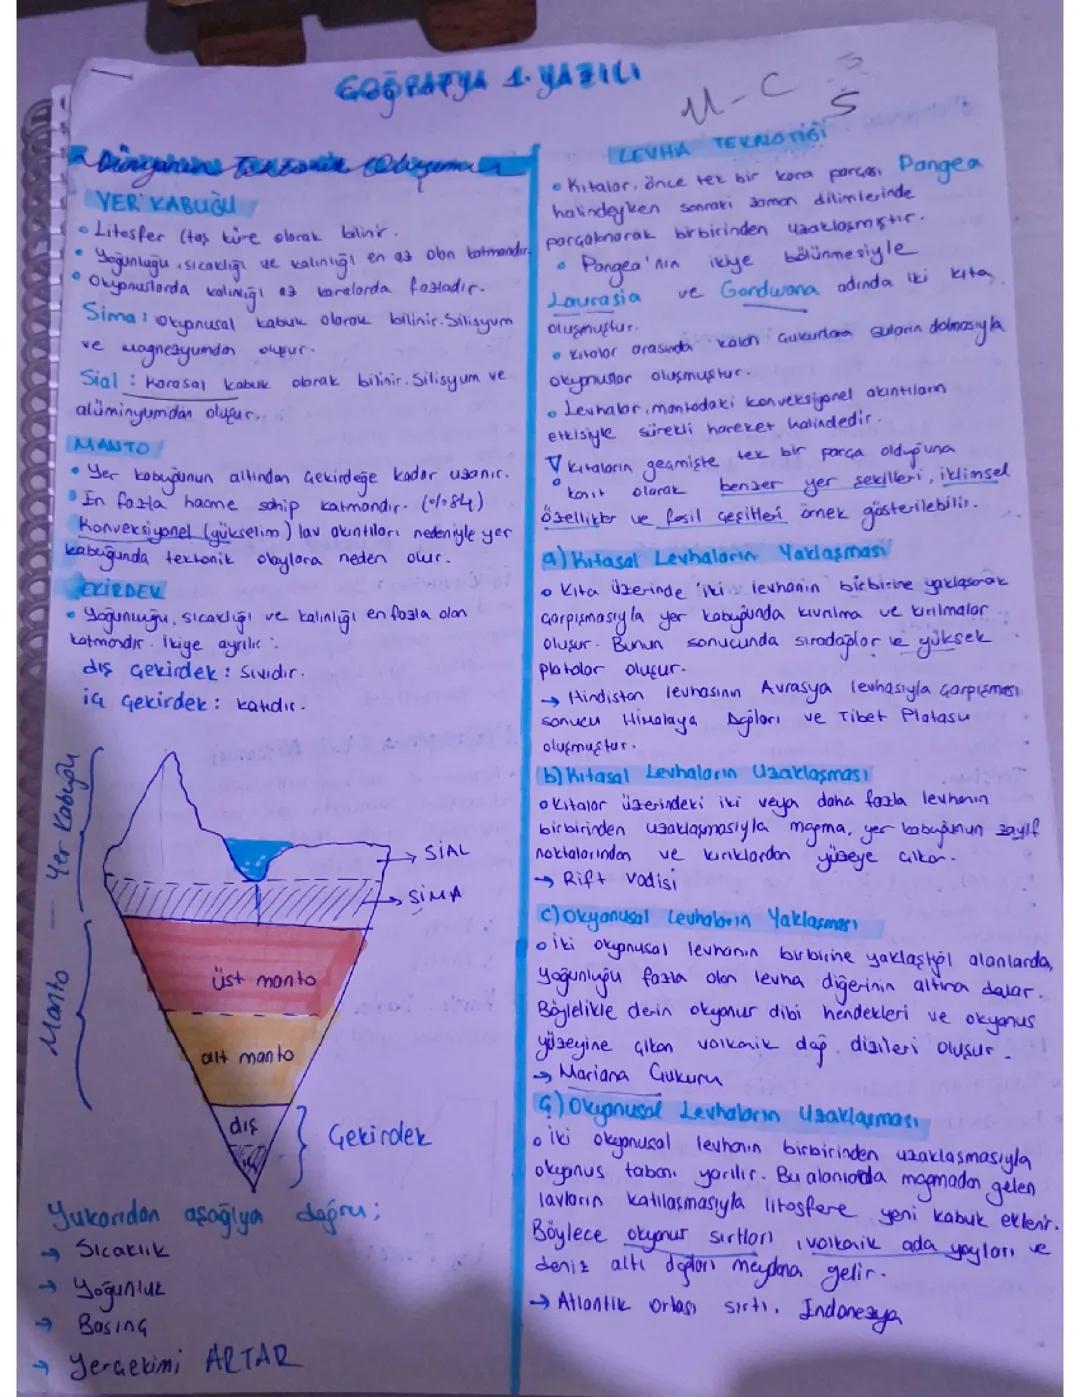 COĞRAFYA 1. YAZILI
Dünyanın Tektonik Oluşumu
YER KABUĞU
• Litosfer (taş küre olarak bilinir.
• Yoğunluğu, sıcaklığı ve kalınlığı en az olan katmandır.
• Okyanuslarda kalınlığı az karalarda fazladır.
Sima: Okyanusal kabuk olarak bilinir. Silisyum
ve magnezyumdan oluşur.
Sial: Karasal kabuk olarak bilinir. Silisyum ve
alüminyumdan oluşur.
MANTO
• Yer kabuğunun altından çekirdeğe kadar uzanır.
• En fazla hacme sahip katmandır. (%84)
Konveksiyonel (yükselim) lav akıntıları nedeniyle yer
kabuğunda tektonik olaylara neden olur.
ÇEKİRDEK
• Yoğunluğu, sıcaklığı ve kalınlığı en fazla olan
katmandır. İkiye ayrılır:
dış çekirdek: sıvıdır.
iç çekirdek: katıdır.
Yer Kabuğu
Manto
SİAL
SİMA
üst manto
alt manto
dış
Çekirdek
Yukarıdan aşağıya doğru;
→ Sıcaklık
→ Yoğunluk
→ Basınç
→ Yerçekimi ARTAR
M-C
5
LEVHA TEKNOTİĞİ
• Kıtalar, önce tek bir kara parçası Pangea
halindeyken sonraki zaman dilimlerinde
parçalanarak birbirinden uzaklaşmıştır.
• Pangea'nın ikiye bölünmesiyle
Laurasia ve Gondwana adında iki kıta
oluşmuştur.
• Kıtalar arasında kalan çukurlara suların dolmasıyla
okyanuslar oluşmuştur.
• Levhalar, mantodaki konveksiyonel akıntıların
etkisiyle sürekli hareket halindedir.
Kıtaların geçmişte tek bir parça olduğuna
kanıt olarak benzer yer şekilleri, iklimsel
özellikler ve fosil çeşitleri örnek gösterilebilir.
a) Kıtasal Levhaların Yaklaşması
• Kıta üzerinde iki levhanın birbirine yaklaşarak
çarpışmasıyla yer kabuğunda kıvrılma ve kırılmalar
oluşur. Bunun sonucunda sıradağlar ve yüksek
platolar oluşur.
→ Hindistan levhasının Avrasya levhasıyla çarpışması
sonucu Himalaya Dağları ve Tibet Platosu
oluşmuştur.
b) Kıtasal Levhaların Uzaklaşması
• Kıtalar üzerindeki iki veya daha fazla levhanın
birbirinden uzaklaşmasıyla magma, yer kabuğunun zayıf
noktalarından ve kırıklardan yüzeye çıkar.
→ Rift vadisi
c) Okyanusal Levhaların Yaklaşması
• İki okyanusal levhanın birbirine yaklaştığı alanlarda,
yoğunluğu fazla olan levha diğerinin altına dalar.
Böylelikle derin okyanus dibi hendekleri ve okyanus
yüzeyine çıkan volkanik dağ dizileri oluşur.
→ Mariana Çukuru
ç) Okyanusal Levhaların Uzaklaşması
• İki okyanusal levhanın birbirinden uzaklaşmasıyla
okyanus tabanı yarılır. Bu alanlarda magmadan gelen
lavların katılaşmasıyla litosfere yeni kabuk eklenir.
Böylece okyanus sırtları, volkanik ada yayları ve
deniz altı dağları meydana gelir.
→ Atlantik Ortası sırtı, Indonezya